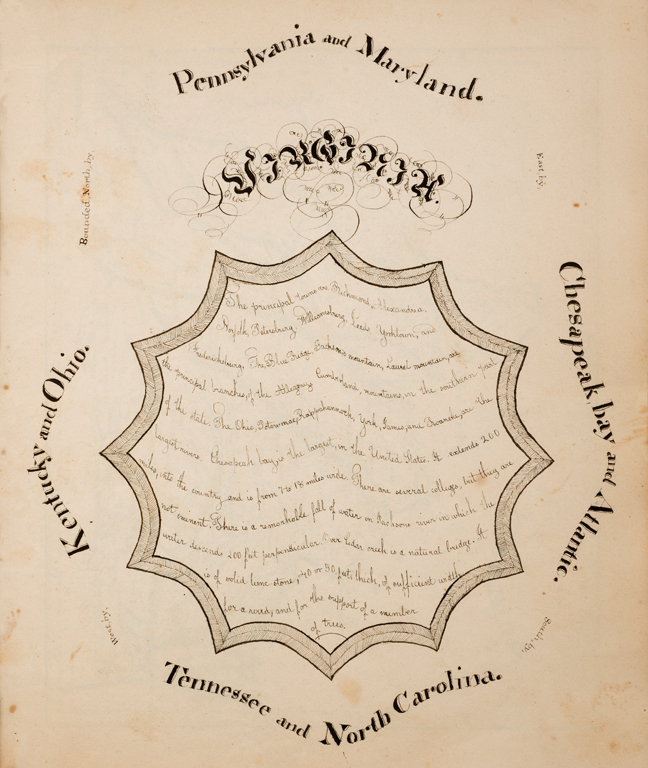 Pennsylvania and Maryland.
VIRGINIA.
Bounded North, by.
East by.
Chesapeak bay and Atlantic.
South, by.
Tennessee and North Carolina.
West by.
Kentucky and Ohio.
The principal towns are Richmond, Alexandria,
Norfolk, Petersburg, Williamsburg, Leeds, Yorktown, and
Fredericksburg. The Blue Ridge, Jacksons mountain, Laurel mountain, are
the principal branches, of the Allegany Cumberland, mountains, in the southern part
of the state. The Ohio, Potowmac, Rappahannock, York, James, and are the
largest rivers. Chesapeak bay, is the largest, in the United States. It extends 200
miles, into the country, and is from 7 to 18 miles wide. There are several colleges, but they are
not eminent. There is a remarkable fall of water on Jacksons river in which the
water descends 200 feet perpendicular. Over Cedar creek is a natural bridge. It
is of solid lime stone, 40 or 50 feet, thick, of sufficient width
for a road; and for the support of a number
of trees.